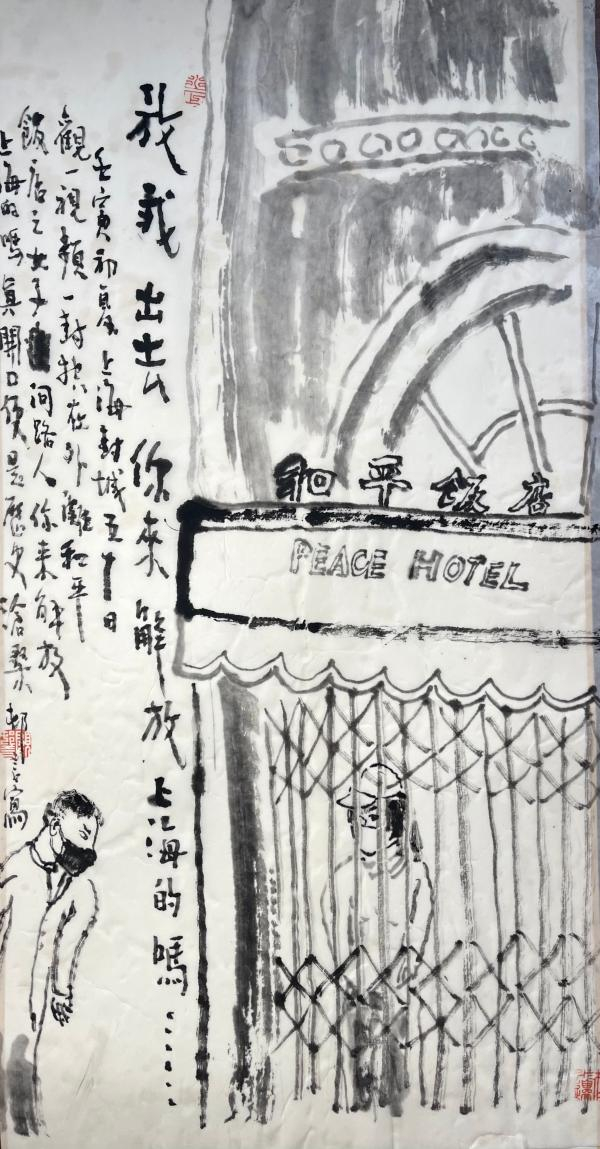 和平飯店
PEACE HOTEL
放我出去你來解放上海的嗎……
壬寅初夏上海封城五十日
觀一視頻一封控在外灘和平
飯店之女子問路人你來解放
上海的嗎真開口便是歷史滄桑